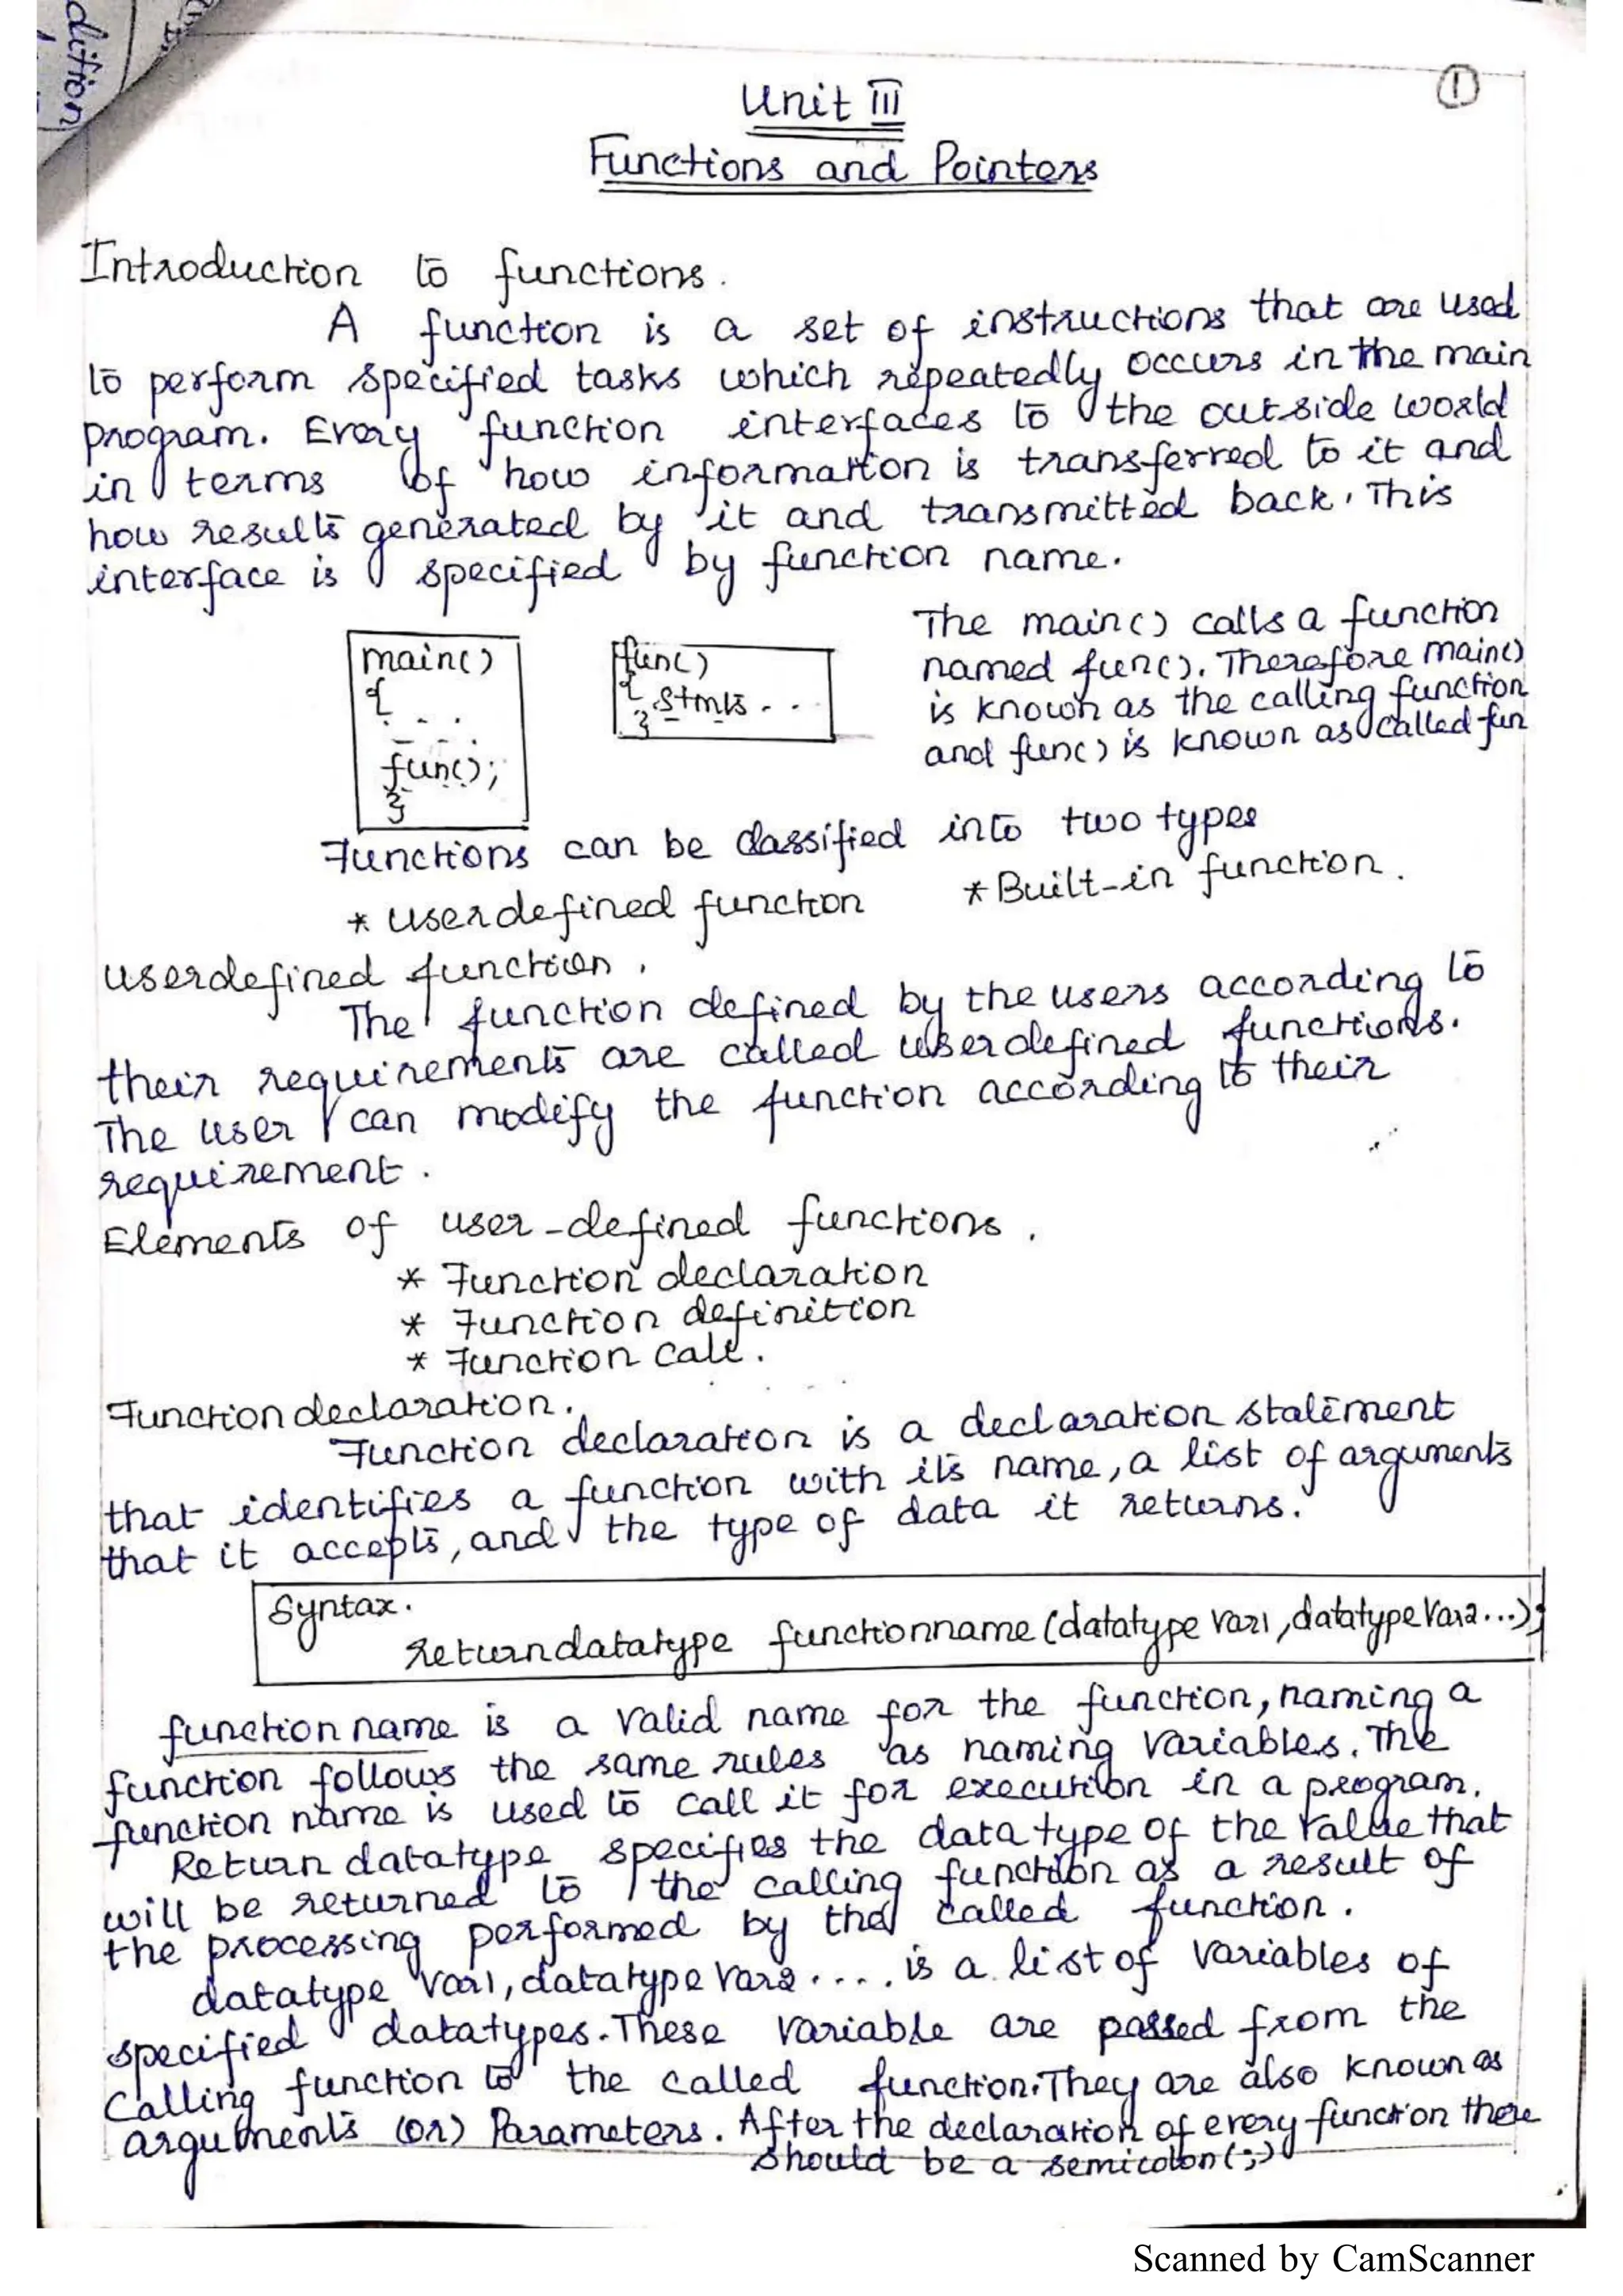 dition
①
Unit III
Functions and Pointers
Introduction to functions.
A function is a set of instructions that are used
to perform specified tasks which repeatedly occurs in the main
program. Every function interfaces to the outside world
in terms of how information is transferred to it and
how results generated by it and transmitted back. This
interface is specified by function name.
main()
{
. . .
- - - .
func();
}
func()
{ stmts . . .
}
The main() calls a function
named func(). Therefore main()
is known as the calling function
and func() is known as called fun
Functions can be classified into two types
* userdefined function * Built-in function.
userdefined function.
The function defined by the users according to
their requirements are called userdefined functions.
The user can modify the function according to their
requirement.
Elements of user-defined functions.
* Function declaration
* Function definition
* Function call.
Function declaration.
Function declaration is a declaration statement
that identifies a function with its name, a list of arguments
that it accepts, and the type of data it returns.
Syntax.
Returndatatype functionname(datatype var1, datatype var2...);
function name is a valid name for the function, naming a
function follows the same rules as naming variables. The
function name is used to call it for execution in a program.
Return datatype specifies the data type of the value that
will be returned to the calling function as a result of
the processing performed by the called function.
datatype var1, datatype var2 .... is a list of variables of
specified datatypes. These variable are passed from the
calling function to the called function. They are also known as
arguments (or) Parameters. After the declaration of every function there
should be a semicolon(;)
Scanned by CamScanner